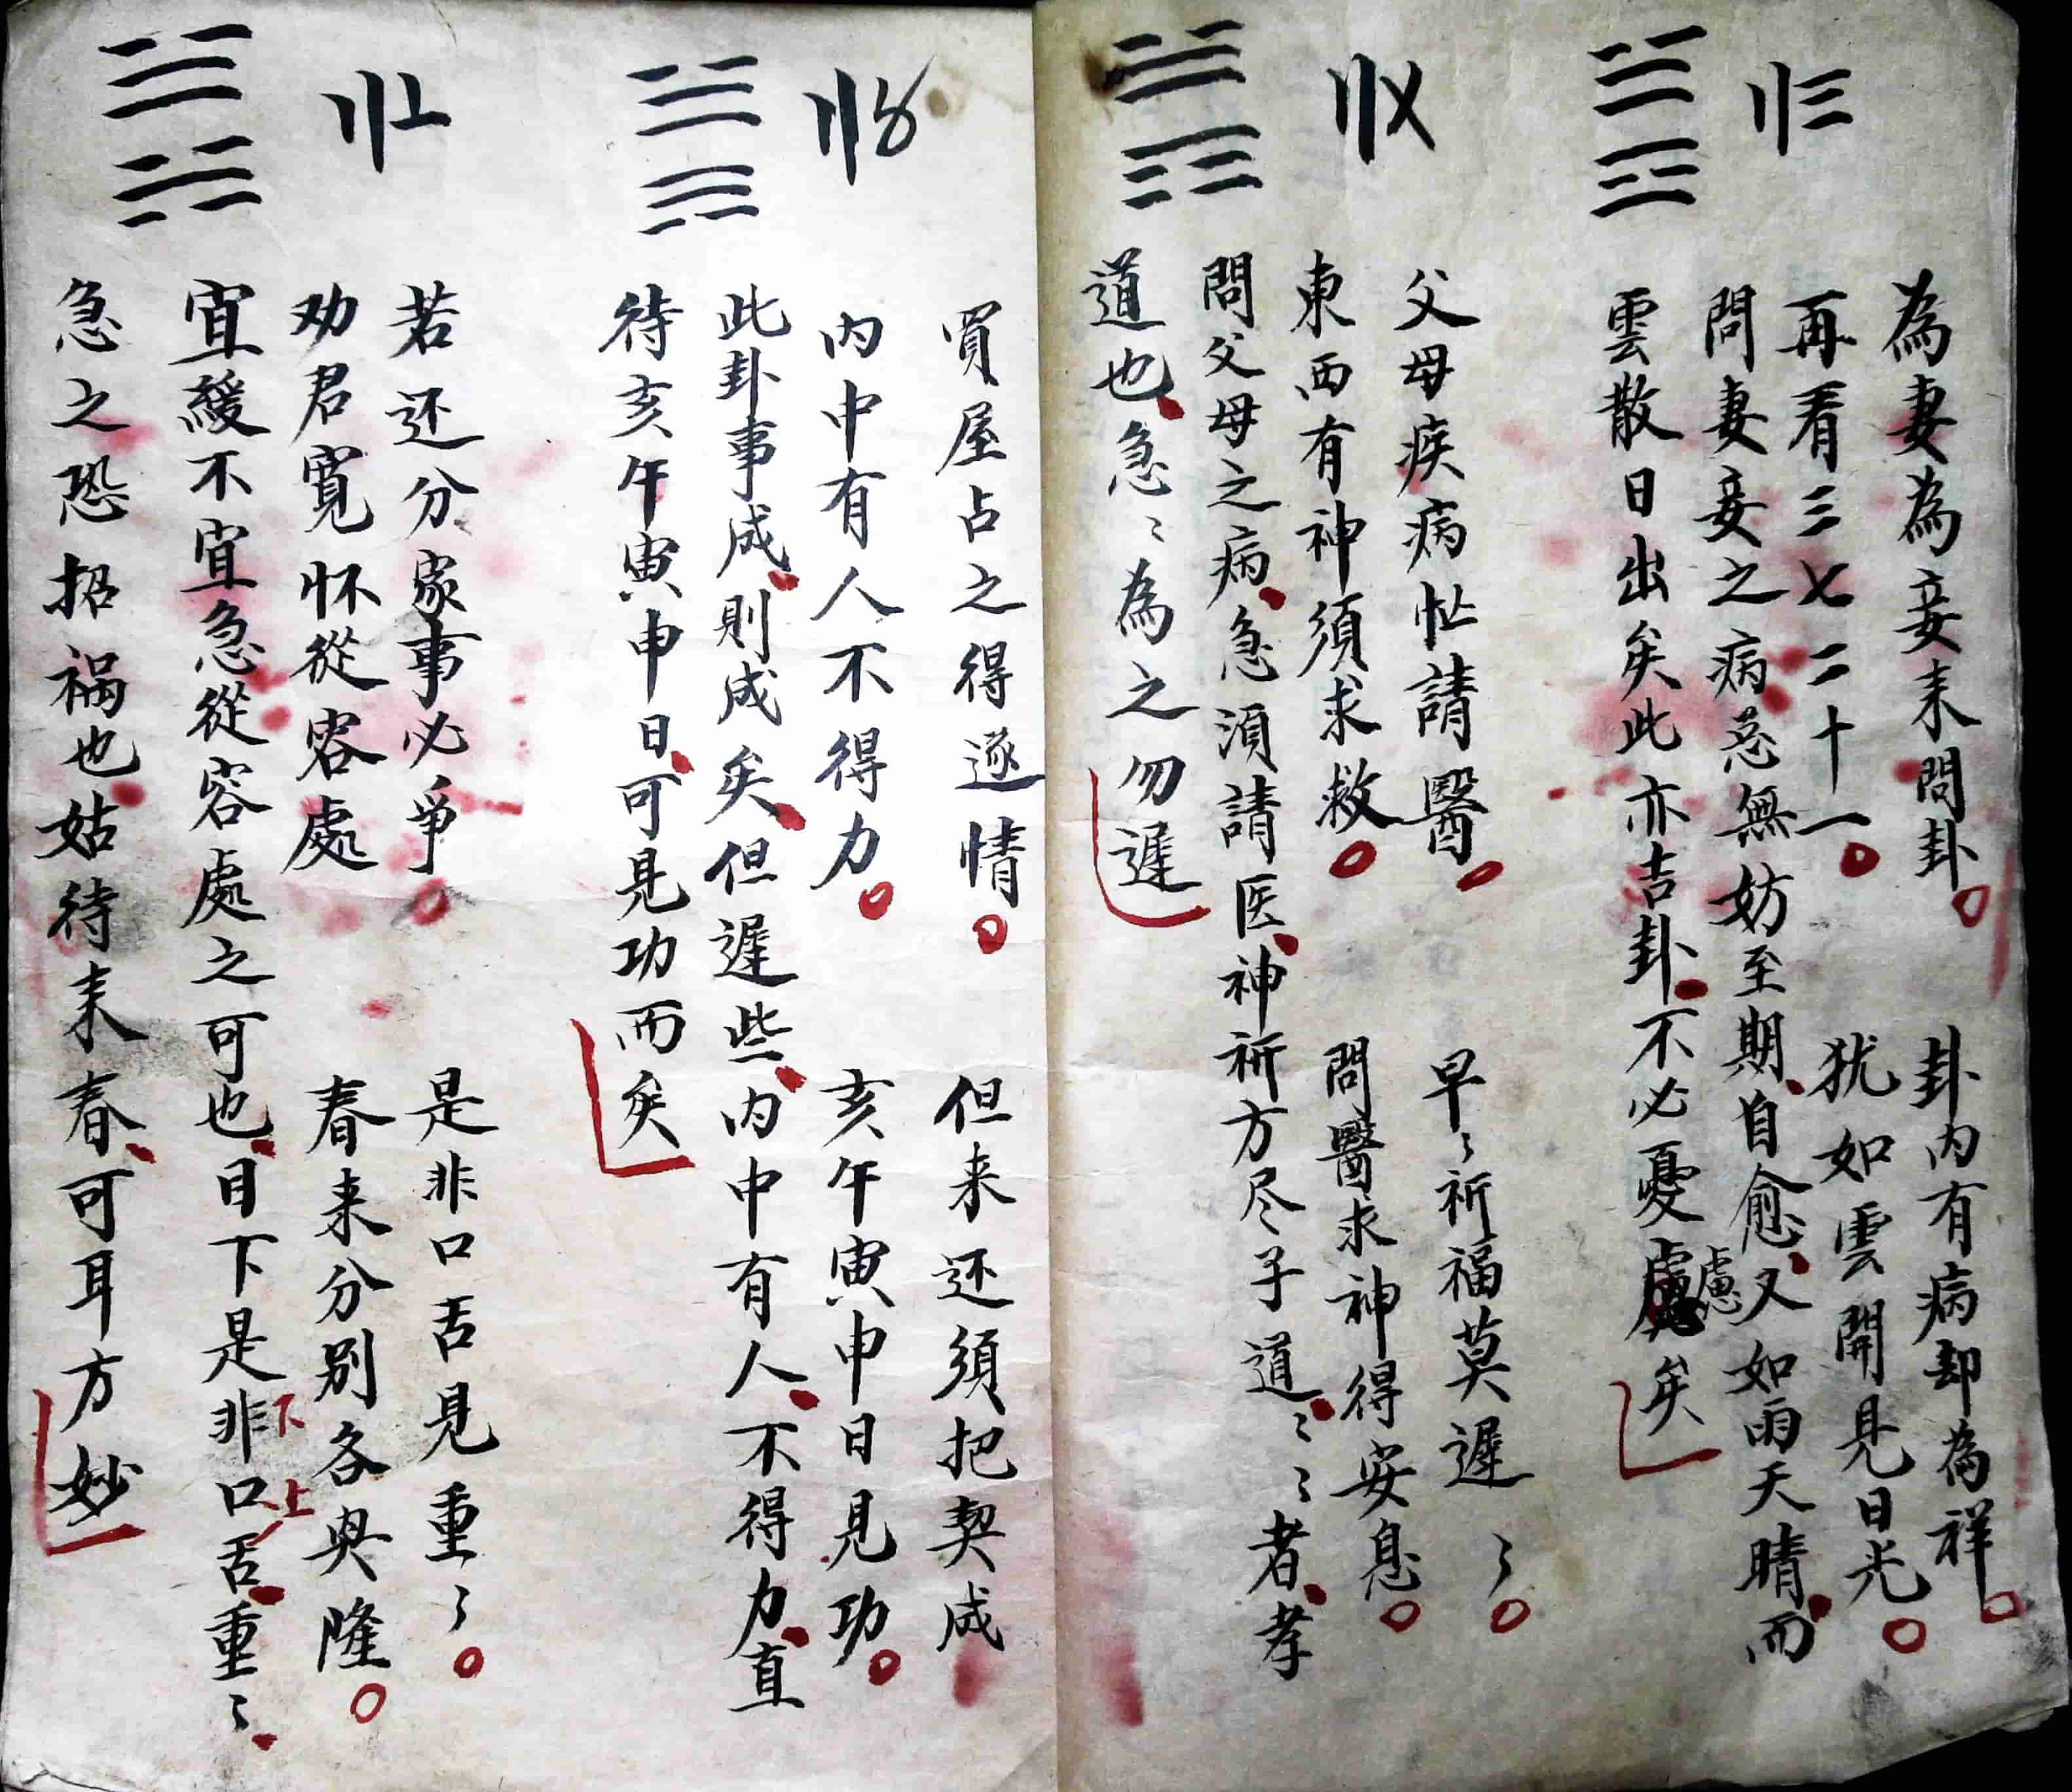 〢三
為妻為妾来問卦 卦内有病却為祥
再看三七二十一 犹如雲開見日光
問妻妾之病 無妨至期自愈又如雨天晴而
雲散日出矣此亦吉卦不必憂慮矣
〢〤
父母疾病忙請醫 早〻祈福莫遲〻
東西有神須求救 問醫求神得安息
問父母之病急須請医神祈方尽子道〻〻者孝
道也急〻為之勿遲
〢〥
買屋占之得逐情 但来还須把契成
内中有人不得力 亥午寅申日見功
此卦事成則成矣但遲些内中有人不得力直
待亥午寅申日可見功而矣
〢〦
若还分家事必爭 是非口舌見重〻
劝君寬怀從容處 春来分别各興隆
宜緩不宜急從容處之可也目下是非下口上舌重〻
急之恐招祸也姑待来春可耳方妙